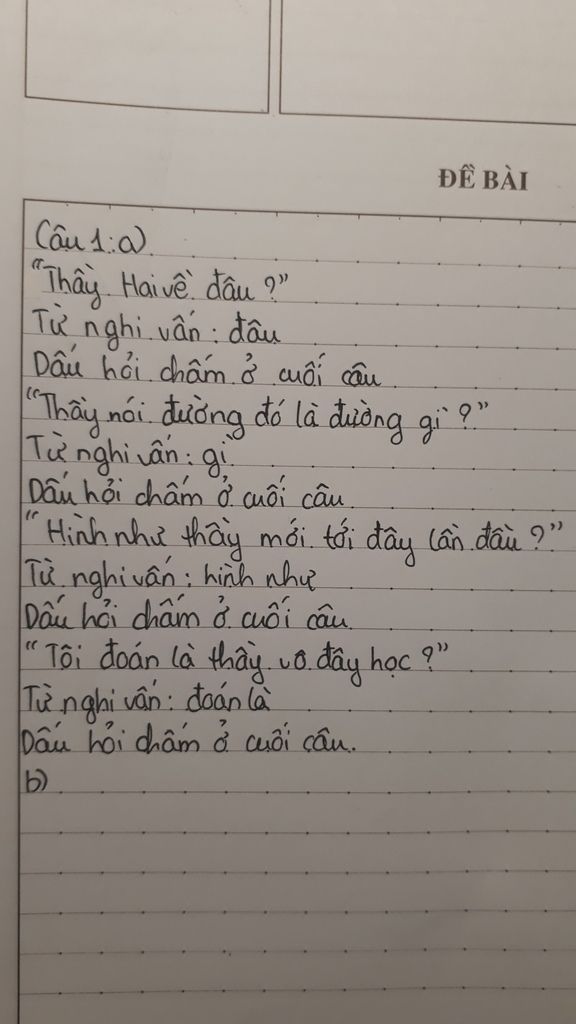 ĐỀ BÀI
Câu 1: a)
"Thầy Hai về đâu ?"
Từ nghi vấn : đâu
Dấu hỏi chấm ở cuối câu
"Thầy nói đường đó là đường gì ?"
Từ nghi vấn : gì
Dấu hỏi chấm ở cuối câu
"Hình như thầy mới tới đây lần đầu ?"
Từ nghi vấn : hình như
Dấu hỏi chấm ở cuối câu.
"Tôi đoán là thầy vô đây học ?"
Từ nghi vấn : đoán là
Dấu hỏi chấm ở cuối câu.
b)